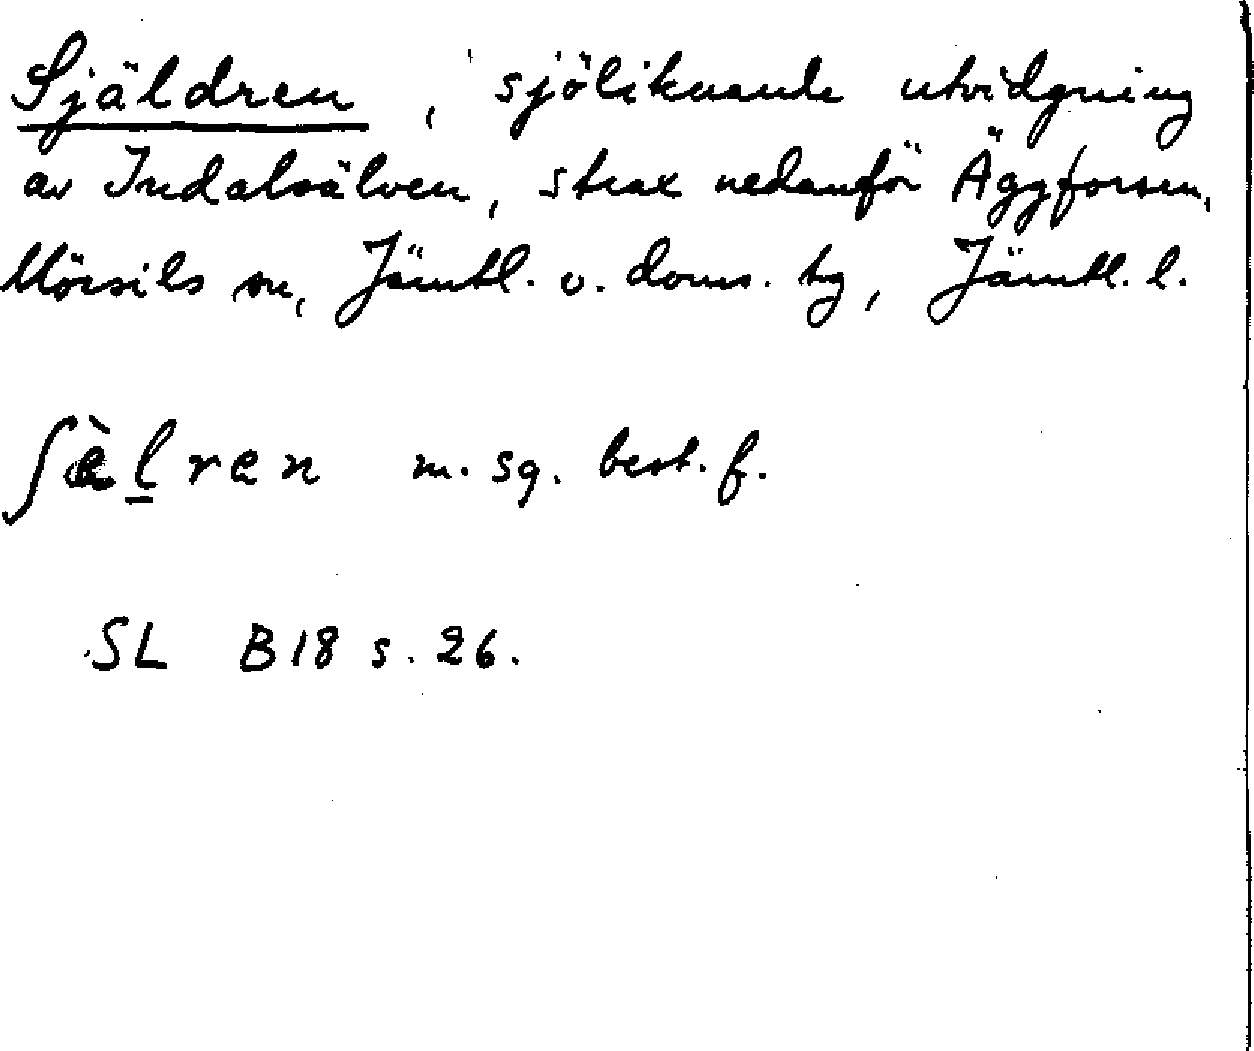 Själdren, sjöliknande utvidgning
av Indalsälven, strax nedanför Äggforsen,
Mörsils sn, Jämtl. v. doms. tg, Jämtl. l.
ʃèl̲ren m. sg. best. f.
SL B18 s. 26.